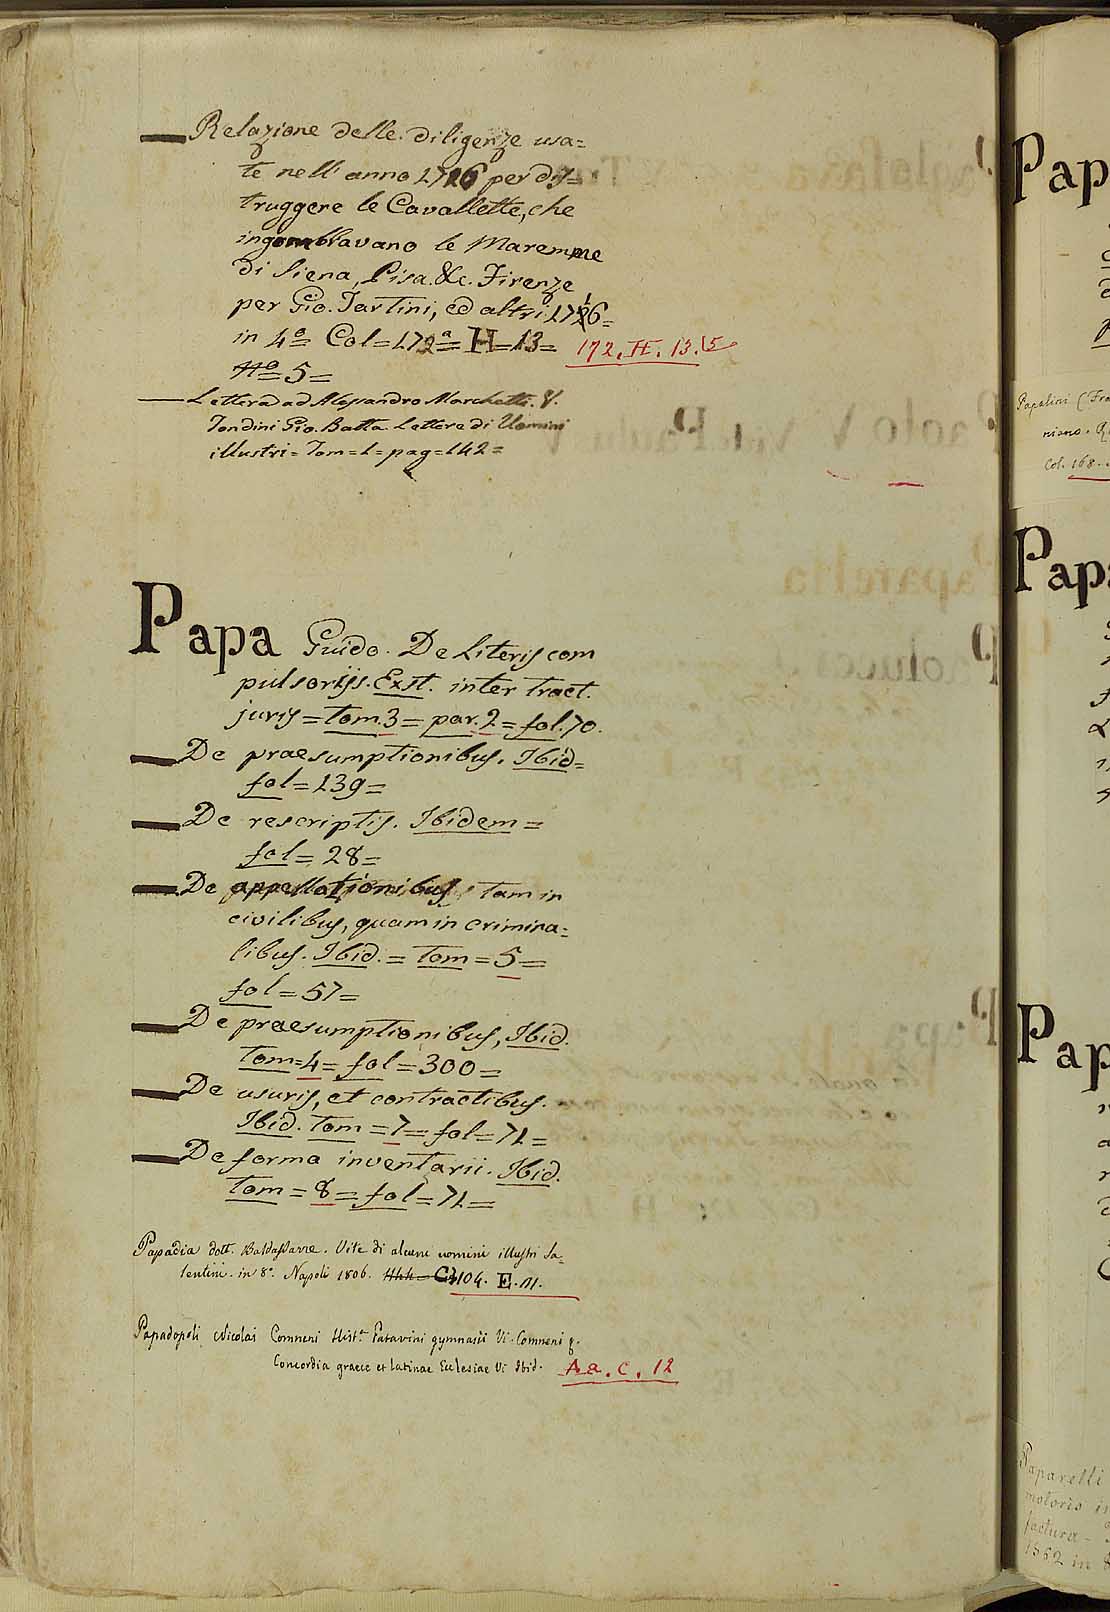 Relazione delle diligenze usa=
te nell'anno 1716 per dis=
truggere le Cavallette, che
ingombravano le Maremme
di Siena, Pisa &c. Firenze
per Gio. Tartini, ed altri 1716=
in 4º= Col=172ª=H=13= 172. H. 13. 15
Nº=5=
Lettera ad Alessandro Marchetti. V.
Fondini Gio. Batta. Lettere di Uomini
illustri=Tom=1=pag=142=
Papa Guido. De Literis com
pulsoriis. Exst. inter tract.
juris=tom.3=par.2=fol.70.
De praesumptionibus. Ibid=
fol=139=
De rescriptis. Ibidem=
fol=28=
De appellationibus tam in
civilibus, quam in crimina=
libus. Ibid.=tom=5=
fol=57=
De praesumptionibus, Ibid.
Tom=4=fol=300=
De usuris, et contractibus.
Ibid. Tom=7=fol=71=
De forma inventarii. Ibid.
Tom=8=fol=71=
Papadia dott. Baldassarre. Vite di alcuni uomini illustri Sa=
lentini. in 8º. Napoli 1806. 104. E. 11.
Papadopoli Nicolai Comneni Hist.ª Patavini gymnasii Vi. Comneni
Concordia graece et latinae Ecclesiae Vi Ibid. Aa. C. 12
Pap
Papalini (Fra
niano.
Col. 168.
Papa
Pap
Paparelli
motorio
1862 in 8